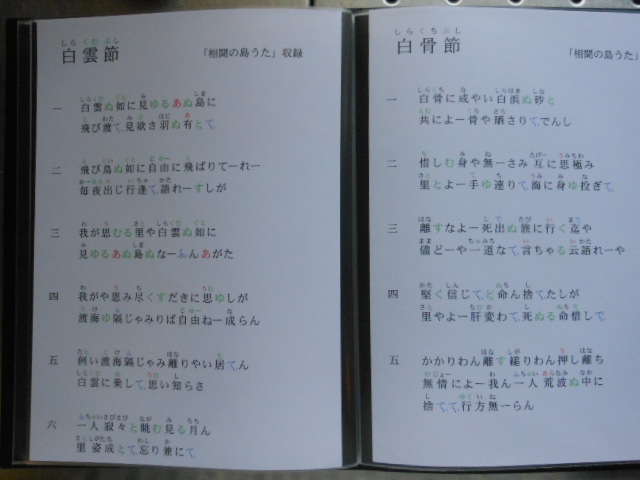 白雲節
「相聞の島うた」収録
一 白雲ぬ如に見ゆるあぬ島に
飛び渡て､見欲さ羽ぬ有とて､
二 飛び鳥ぬ如に自由に飛ばりてーれー
毎夜出じ行逢て､語れーすしが
三 我が思むる里や白雲ぬ如に
見ゆるあぬ島ぬなーふんあがた
四 我がや思み尽くすだきに思ゆしが
渡海ゆ隔じゃみりば自由ねー成らん
五 例い渡海隔じゃみ離りやい居てん
白雲に乗して､思い知らさ
六 一人寂々と眺む見る月ん
里姿成とて､忘り兼にて､
白骨節
「相聞の島うた」
一 白骨に成やい白浜ぬ砂と
共によー骨や晒さりて､でんし
二 惜しむ身や無一さみ互に思極み
里とよー手ゆ連りて､海に身ゆ投ぎて､
三 離すなよー死出ぬ旅に行く迄や
儘どーや一道なて､言ちゃる云語れーや
四 堅く信じて､ど命ん捨てたしが
里やよー肝変わて､死ぬる命惜しで､
五 かかりわん離す縋りわん押し離ち
無情によー我ん一人荒波ぬ中に
捨てて､て､行方無ーらん